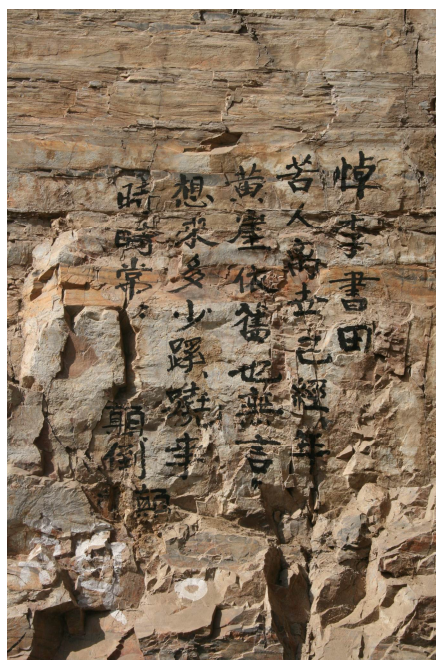 悼李書田
苦人离世已經年
黄崖依舊也無言
想来多少蹊蹺事
時時常々顛倒顛